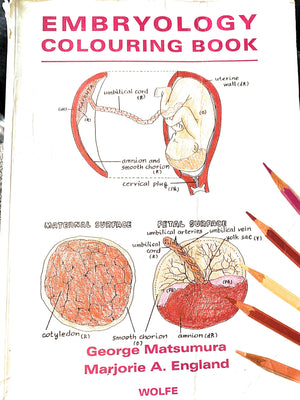 EMBRYOLOGY
COLOURING BOOK
uterine
wall (dR)
umbilical cord
(R)
PLACENTA
(R)
amnion and
smooth chorion
(R)
cervical plug
MATERNAL SURFACE
FETAL SURFACE
umbilical arteries
umbilical vein
yolk sac (Y)
umbilical
cord
(R)
cotyledon (R)
smooth chorion
amnion (dR)
George Matsumura
Marjorie A. England
WOLFE